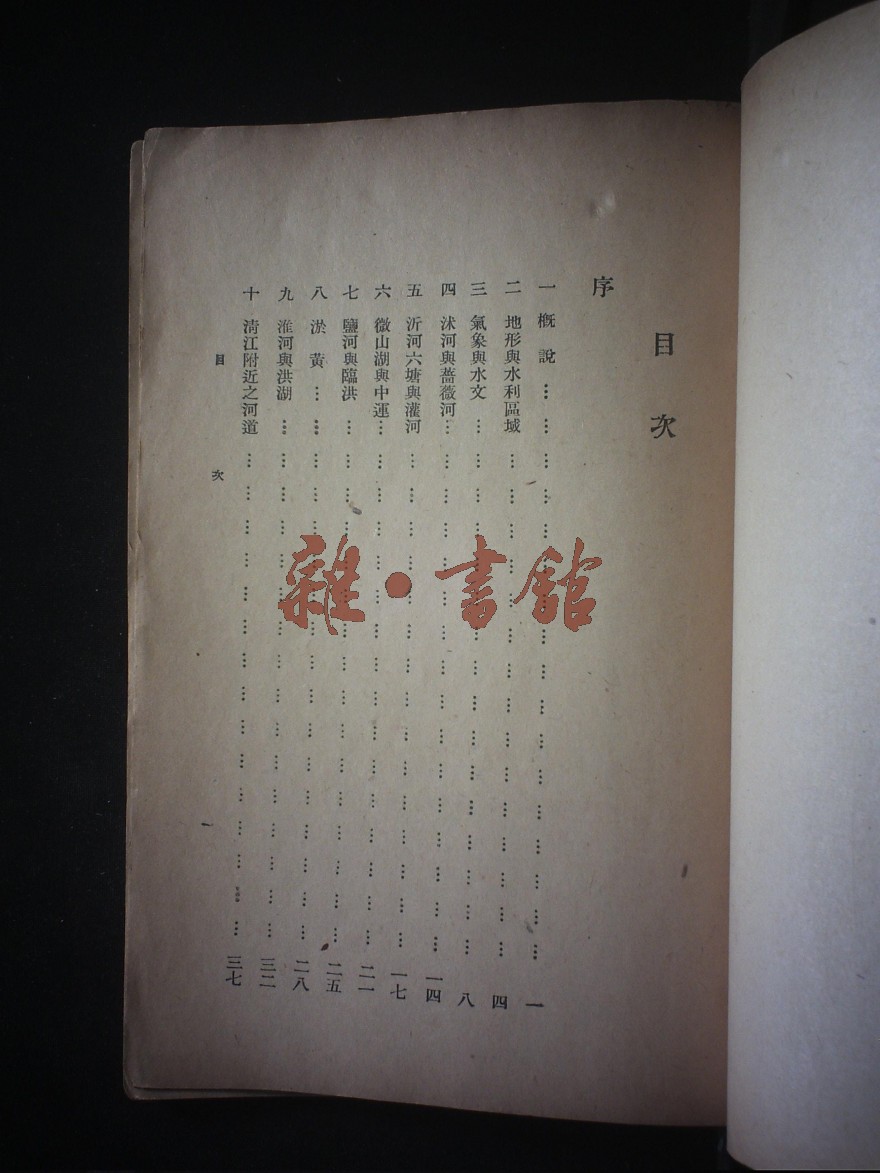 目次
序
一 概說 …………………… 一
二 地形與水利區域 …………………… 四
三 氣象與水文 …………………… 八
四 沭河與薔薇河 …………………… 一四
五 沂河六塘與灌河 …………………… 一七
六 微山湖與中運 …………………… 二一
七 鹽河與臨洪 …………………… 二五
八 淤黃 …………………… 二八
九 淮河與洪湖 …………………… 三二
十 淸江附近之河道 …………………… 三七
目次
雜·書館